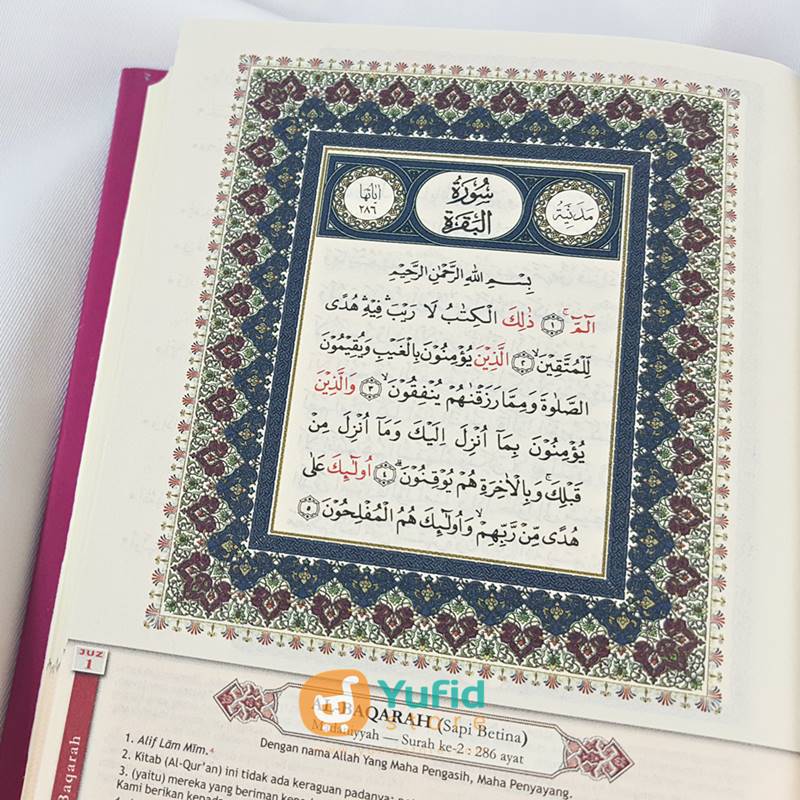 مَدَنِيَّة
سُوْرَةُ
الْبَقَرَةِ
اٰيَاتُهَا
٢٨٦
بِسْمِ اللّٰهِ الرَّحْمٰنِ الرَّحِيْمِ
الۤمّۤ ۚ ١ ذٰلِكَ الْكِتٰبُ لَا رَيْبَ ۛ فِيْهِ ۛ هُدًى
لِّلْمُتَّقِيْنَۙ ٢ الَّذِيْنَ يُؤْمِنُوْنَ بِالْغَيْبِ وَيُقِيْمُوْنَ
الصَّلٰوةَ وَمِمَّا رَزَقْنٰهُمْ يُنْفِقُوْنَۙ ٣ وَالَّذِيْنَ
يُؤْمِنُوْنَ بِمَآ اُنْزِلَ اِلَيْكَ وَمَآ اُنْزِلَ مِنْ
قَبْلِكَۚ وَبِالْاٰخِرَةِ هُمْ يُوْقِنُوْنَۗ ٤ اُولٰۤىِٕكَ عَلٰى
هُدًى مِّنْ رَّبِّهِمْۙ وَاُولٰۤىِٕكَ هُمُ الْمُفْلِحُوْنَ ٥
JUZ
1
Yufid
store
AL-BAQARAH (Sapi Betina)
Madaniyyah — Surah ke-2 : 286 ayat
Dengan nama Allah Yang Maha Pengasih, Maha Penyayang.
1. Alif Lām Mīm.4
2. Kitab (Al-Qur'an) ini tidak ada keraguan padanya;
3. (yaitu) mereka yang beriman
Kami berikan kepada
Baqarah